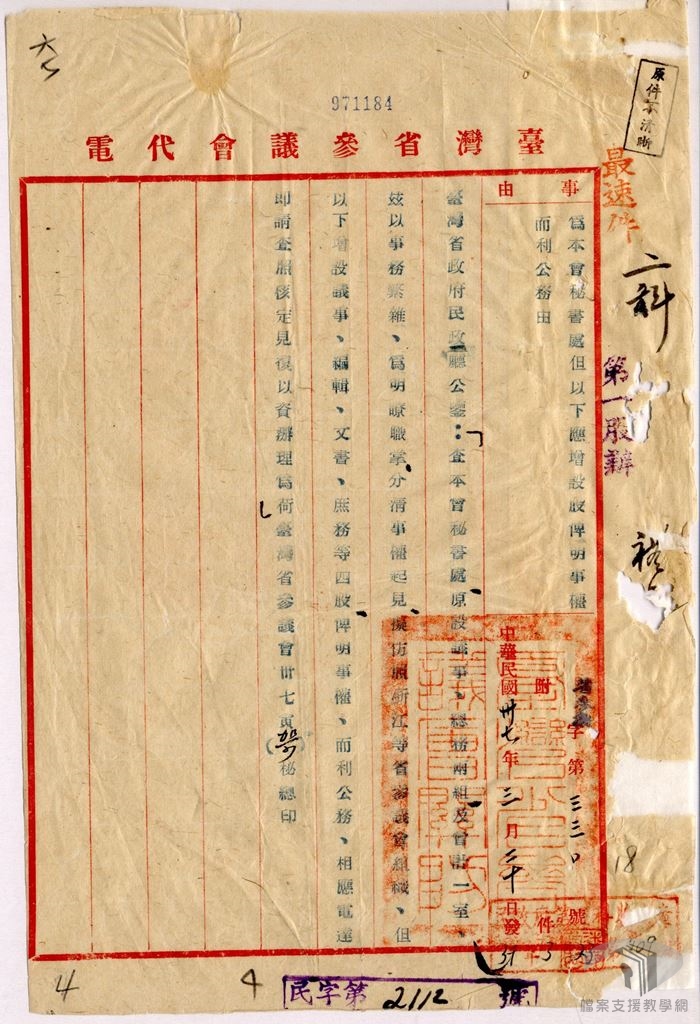 971184
原件不清晰
臺灣省參議會代電
最速件
二科
第一股辦
事由
為本會秘書處但以下應增設股俾明事權
而利公務由
字第三三〇號
附件
中華民國卅七年三月二十日發
臺灣省政府民政廳公鑒：查本會秘書處原設議事、總務兩組及會計一室、
茲以事務繁雜、為明瞭職掌分清事權起見擬仿照浙江等省參議會組織、但
以下增設議事、編輯、文書、庶務等四股俾明事權、而利公務、相應電達
即請查照核定見復以資辦理為荷臺灣省參議會卅七寅(
)秘總印
18
4
4
民字第2112號
檔案支援教學網